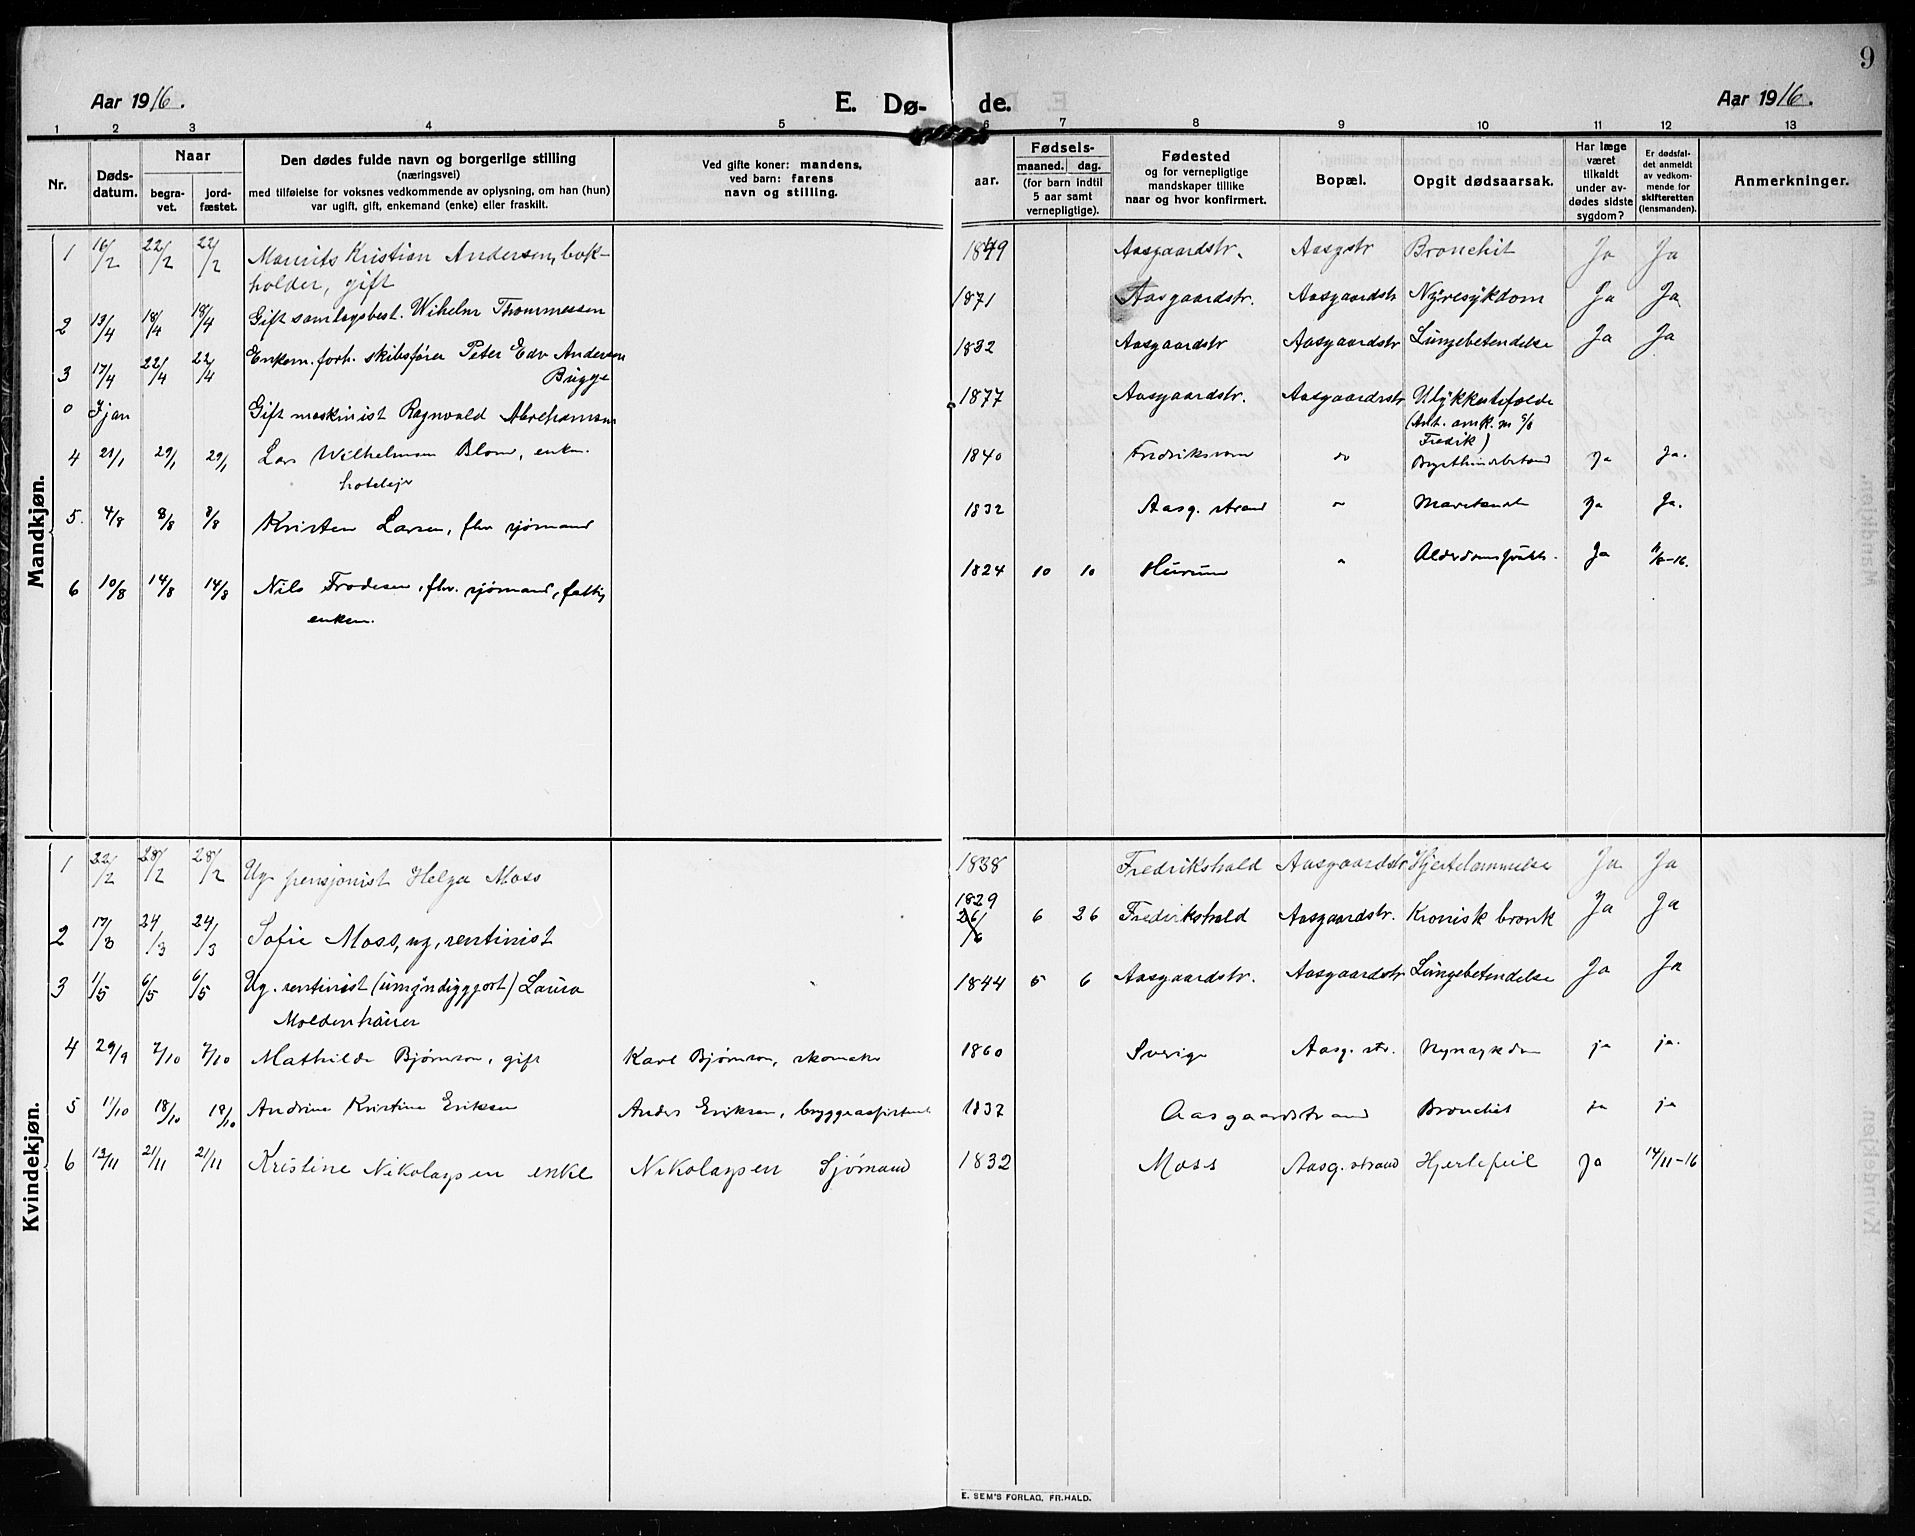 9
Aar 1916. E. Dø- de. Aar 1916.
1 2 3 4 5 6 7 8 9 10 11 12 13
Nr.
Døds-
datum.
Naar
begra-
vet.
jord-
fæstet.
Den dødes fulde navn og borgerlige stilling
(næringsvei)
med tilføielse for voksnes vedkommende av oplysning, om han (hun)
var ugift, gift, enkemand (enke) eller fraskilt.
Ved gifte koner: mandens,
ved barn: farens
navn og stilling.
aar.
Fødsels-
maaned. dag.
(for barn indtil
5 aar samt
vernepligtige).
Fødested
og for vernepligtige
mandskaper tillike
naar og hvor konfirmert.
Bopæl.
Opgit dødsaarsak.
Har læge
været
tilkaldt
under av-
dødes sidste
sygdom?
Er dødsfal-
det anmeldt
av vedkom-
mende for
skifteretten
(lensmanden).
Anmerkninger.
Mandkjøn.
1 16/2 22/2 22/2 Maurits Kristian Andersen, bok- 1849 Aasgaardstr. Aasgstr Bronchit Ja Ja
holder, gift
2 13/4 18/4 18/4 Gift samlagsbest. Wilhelm Thommessen 1871 Aasgaardstr. Aasgaardstr Nyresykdom Ja Ja
3 17/4 22/4 22/4 Enkem. forh. skibsfører Peter Edv Andersen 1832 Aasgaardstr Aasgaardstr Lungebetendelse Ja Ja
Bugge
0 Jjan Gift maskinist Ragnvald Abrahamsen 1877 Aasgaardstr. Aasgaardstr Ulykkestilfælde
(Ant. omk. m s/s
Fredrik)
4 21/1 29/1 29/1 Lars Wilhelmsen Blom, enkem. 1840 Fredriksværn do Brysthindebetænd ja Ja.
hoteleier
5. 4/8 8/8 8/8 Kristen Larsen, fhv sjømand 1832 Aasg. strand " ja Ja.
6 10/8 14/8 14/8 Nils Frodesen, fhv. sjømand, fattig 1824 10 10 Hurum " Ja 11/8-16.
enkem.
Kvindekjøn.
1 22/2 28/2 28/2 Ug pensjonist Helga Moss 1838 Fredrikshald Aasgaardstr Hjertelammelse Ja Ja
2 17/3 24/3 24/3 Sofie Moss, ug, rentinist 1829 26/6 6 26 Fredrikshald Aasgaardstr. Kronisk bronk Ja Ja
3 1/5 6/5 6/5 Ug. rentinist (umyndiggjort) Laura 1844 5 6 Aasgaardstr. Aasgaardstr Lungebetendelse Ja Ja
Moldenhauer
4 29/9 7/10 7/10 Mathilde Bjørnson, gift Karl Bjørnson, skomaker 1860 Sverige Aasg. str. Nyresykdom ja ja.
5 11/10 18/10 18/10 Andrine Kristine Eriksen Anders Eriksen, 1837 Aasgaardstrand Bronchit ja ja
6 13/11 21/11 21/11 Kristine Nikolaysen enke Nikolaysen Sjømand 1832 Moss Aasg. strand Hjertefeil Ja 14/11-16
E. SEM'S FORLAG, FR.HALD.